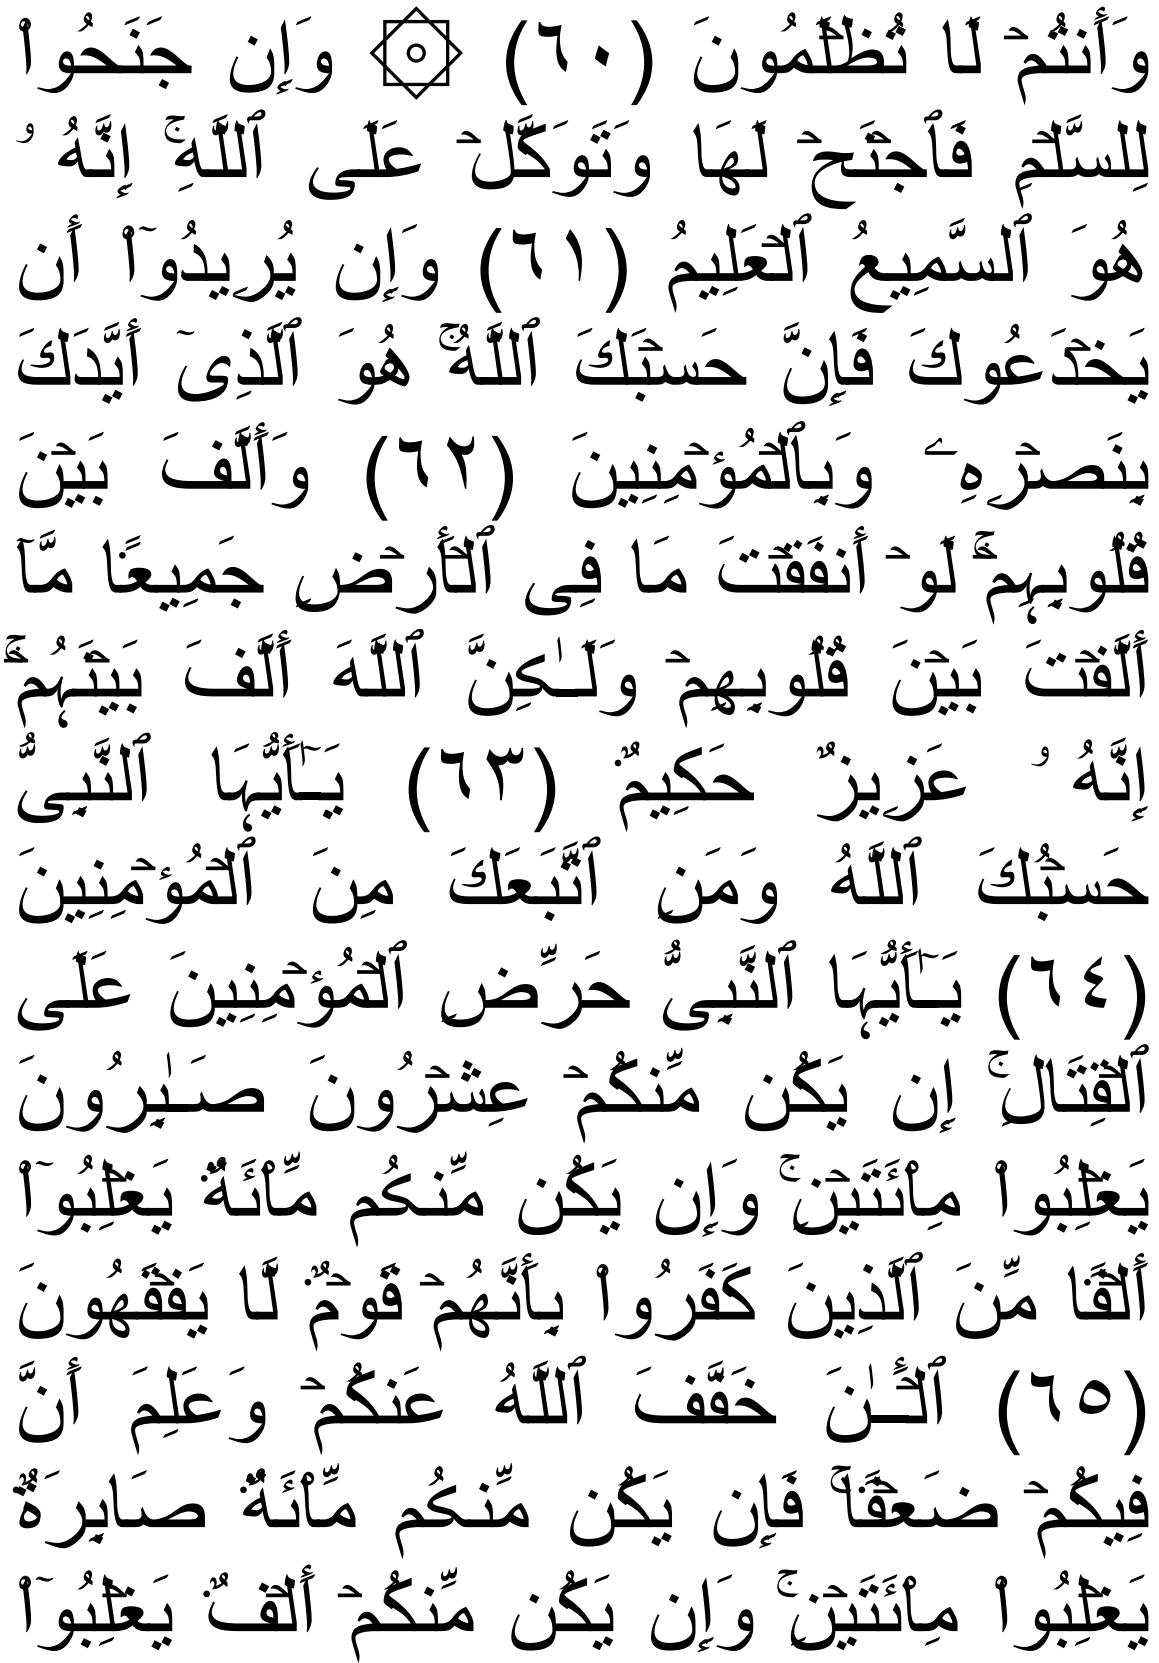 وَأَنتُمۡ لَا تُظۡلَمُونَ (٦٠) ۞ وَإِن جَنَحُواْ
لِلسَّلۡمِ فَٱجۡنَحۡ لَهَا وَتَوَكَّلۡ عَلَى ٱللَّهِۚ إِنَّهُ ۥ
هُوَ ٱلسَّمِيعُ ٱلۡعَلِيمُ (٦١) وَإِن يُرِيدُوٓاْ أَن
يَخۡدَعُوكَ فَإِنَّ حَسۡبَكَ ٱللَّهُۚ هُوَ ٱلَّذِىٓ أَيَّدَكَ
بِنَصۡرِهِۦ وَبِٱلۡمُؤۡمِنِينَ (٦٢) وَأَلَّفَ بَيۡنَ
قُلُوبِہِمۡۚ لَوۡ أَنفَقۡتَ مَا فِى ٱلۡأَرۡضِ جَمِيعً۬ا مَّآ
أَلَّفۡتَ بَيۡنَ قُلُوبِهِمۡ وَلَـٰڪِنَّ ٱللَّهَ أَلَّفَ بَيۡنَہُمۡۚ
إِنَّهُ ۥ عَزِيزٌ حَكِيمٌ۬ (٦٣) يَـٰٓأَيُّہَا ٱلنَّبِىُّ
حَسۡبُكَ ٱللَّهُ وَمَنِ ٱتَّبَعَكَ مِنَ ٱلۡمُؤۡمِنِينَ
(٦٤) يَـٰٓأَيُّہَا ٱلنَّبِىُّ حَرِّضِ ٱلۡمُؤۡمِنِينَ عَلَى
ٱلۡقِتَالِۚ إِن يَكُن مِّنكُمۡ عِشۡرُونَ صَـٰبِرُونَ
يَغۡلِبُواْ مِاْئَتَيۡنِۚ وَإِن يَكُن مِّنڪُم مِّاْئَةٌ۬ يَغۡلِبُوٓاْ
أَلۡفً۬ا مِّنَ ٱلَّذِينَ كَفَرُواْ بِأَنَّهُمۡ قَوۡمٌ۬ لَّا يَفۡقَهُونَ
(٦٥) ٱلۡـَٔـٰنَ خَفَّفَ ٱللَّهُ عَنكُمۡ وَعَلِمَ أَنَّ
فِيكُمۡ ضَعۡفً۬اۚ فَإِن يَكُن مِّنڪُم مِّاْئَةٌ۬ صَابِرَةٌ۬
يَغۡلِبُواْ مِاْئَتَيۡنِۚ وَإِن يَكُن مِّنكُمۡ أَلۡفٌ۬ يَغۡلِبُوٓاْ